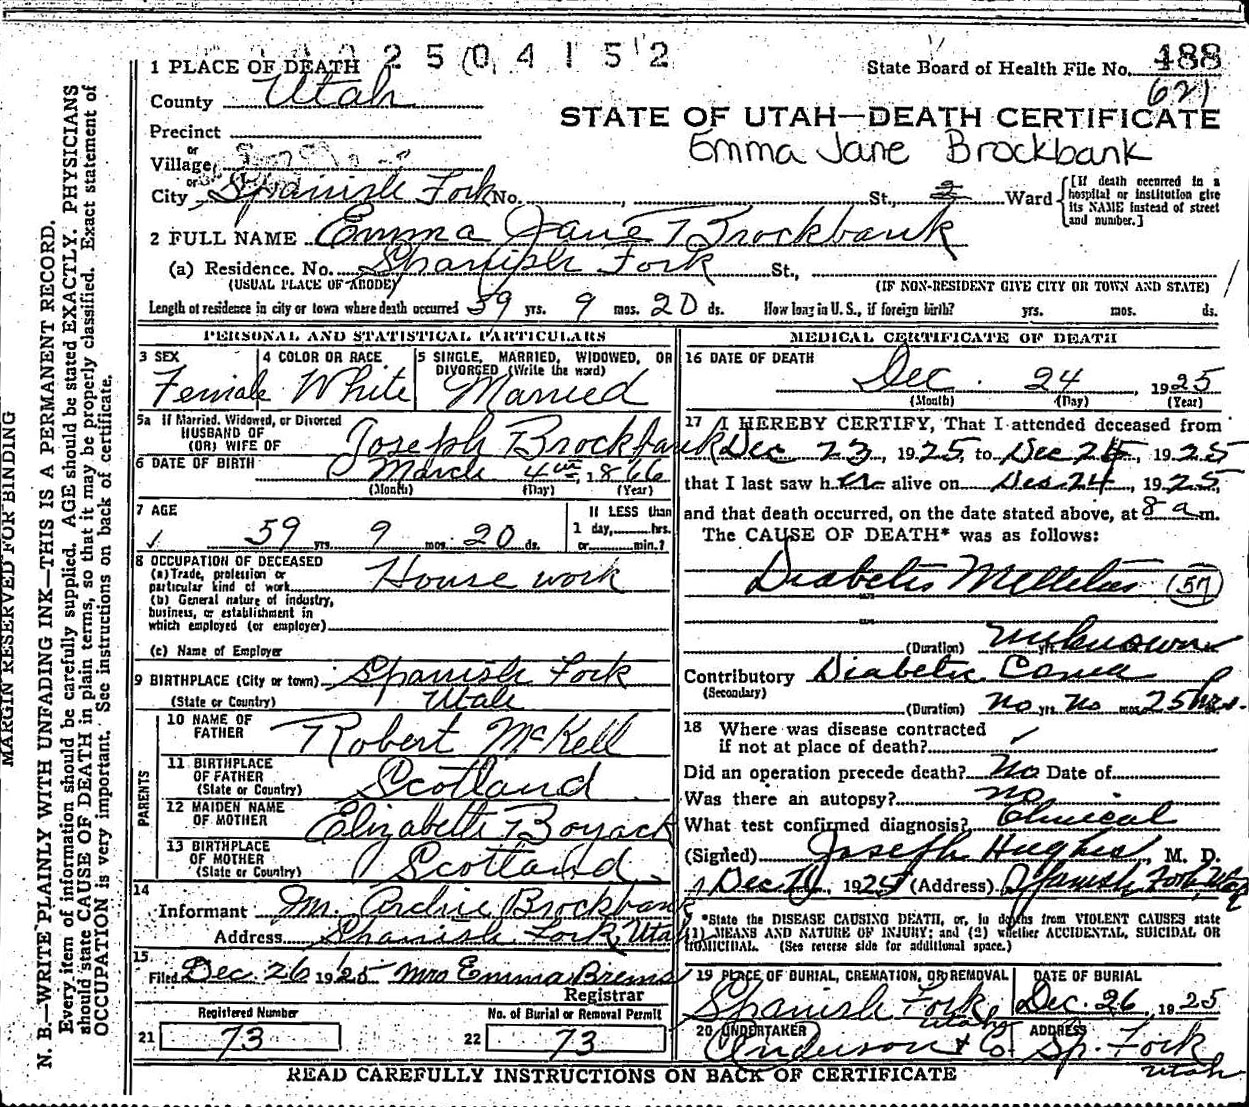 2504152
1 PLACE OF DEATH
State Board of Health File No. 488
621
County Utah
STATE OF UTAH—DEATH CERTIFICATE
Emma Jane Brockbank
Precinct
or
Village
or
City Spanish Fork No. St., 2 Ward
[If death occurred in a hospital or institution give its NAME instead of street and number.]
2 FULL NAME Emma Jane Brockbank
(a) Residence. No. Spanish Fork St.,
(USUAL PLACE OF ABODE) (IF NON-RESIDENT GIVE CITY OR TOWN AND STATE)
Length of residence in city or town where death occurred 59 yrs. 9 mos. 20 ds. How long in U. S., if foreign birth? yrs. mos. ds.
PERSONAL AND STATISTICAL PARTICULARS
3 SEX Female
4 COLOR OR RACE White
5 SINGLE, MARRIED, WIDOWED, OR DIVORCED (Write the word) Married
5a If Married, Widowed, or Divorced
HUSBAND OF
(OR) WIFE OF Joseph Brockbank
6 DATE OF BIRTH March 4th, 1866
(Month) (Day) (Year)
7 AGE 59 yrs. 9 mos. 20 ds.
If LESS than
1 day, hrs.
or min.?
8 OCCUPATION OF DECEASED
(a) Trade, profession or
particular kind of work House work
(b) General nature of industry,
business, or establishment in
which employed (or employer)
(c) Name of Employer
9 BIRTHPLACE (City or town) Spanish Fork
(State or Country) Utah
PARENTS
10 NAME OF
FATHER Robert McKell
11 BIRTHPLACE
OF FATHER
(State or Country) Scotland
12 MAIDEN NAME
OF MOTHER Elizabeth Boyack
13 BIRTHPLACE
OF MOTHER
(State or Country) Scotland
14
Informant Archie Brockbank
Address Spanish Fork, Utah
15
Filed Dec. 26 1925 Mrs Emma Brems
Registrar
Registered Number
21 73
No. of Burial or Removal Permit
22 73
MEDICAL CERTIFICATE OF DEATH
16 DATE OF DEATH
Dec. 24, 1925
(Month) (Day) (Year)
17 I HEREBY CERTIFY, That I attended deceased from
Dec 23, 1925, to Dec, 1925
that I last saw her alive on Dec 24, 1925,
and that death occurred, on the date stated above, at 8 a m.
The CAUSE OF DEATH* was as follows:
Diabetis Mellitus (57)
(Duration) yrs. unknown
Contributory Diabetic Coma
(Secondary)
(Duration) no yrs. no mos. 25 hrs.
18 Where was disease contracted
if not at place of death?
Did an operation precede death? No Date of
Was there an autopsy? no
What test confirmed diagnosis? Clinical
(Signed) Joseph Hughes, M. D.
Dec, 1925 (Address) Spanish Fork, Utah
*State the DISEASE CAUSING DEATH, or, in deaths from VIOLENT CAUSES state
(1) MEANS AND NATURE OF INJURY; and (2) whether ACCIDENTAL, SUICIDAL OR
HOMICIDAL. (See reverse side for additional space.)
19 PLACE OF BURIAL, CREMATION, OR REMOVAL
Spanish Fork Utah
DATE OF BURIAL
Dec. 26, 1925
20 UNDERTAKER
Anderson & Co.
ADDRESS
Sp. Fork Utah
READ CAREFULLY INSTRUCTIONS ON BACK OF CERTIFICATE
MARGIN RESERVED FOR BINDING
N. B.—WRITE PLAINLY WITH UNFADING INK—THIS IS A PERMANENT RECORD.
Every item of information should be carefully supplied. AGE should be stated EXACTLY. PHYSICIANS
should state CAUSE OF DEATH in plain terms, so that it may be properly classified. Exact statement of
OCCUPATION is very important. See instructions on back of certificate.